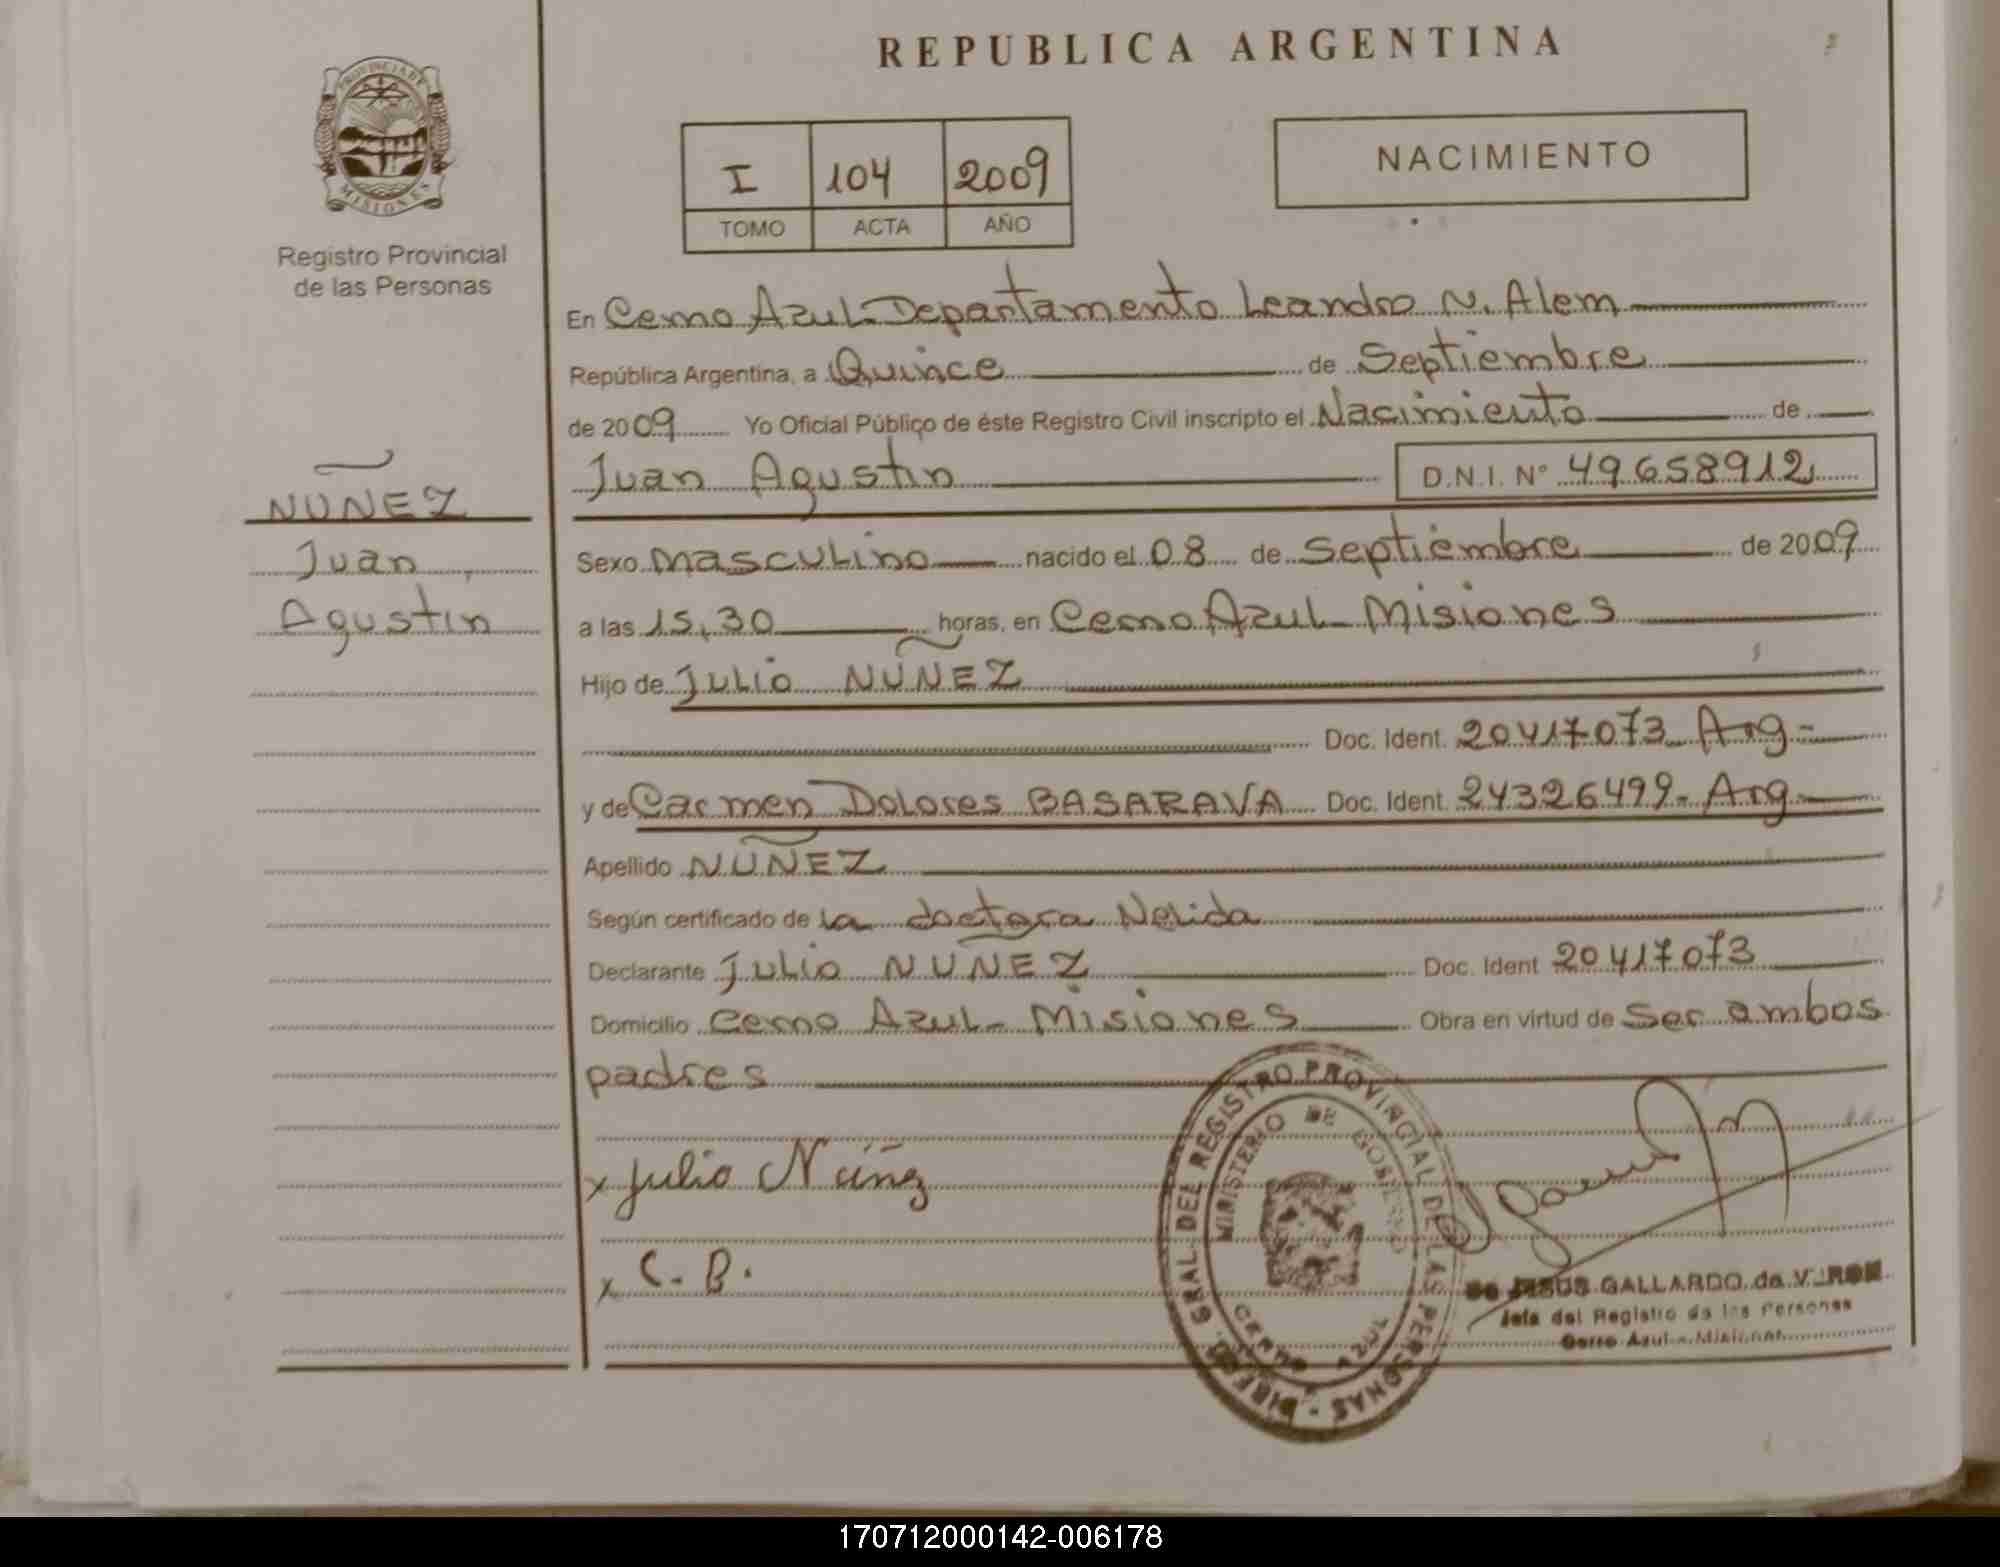 REPUBLICA ARGENTINA
PROVINCIA DE
MISIONES
Registro Provincial
de las Personas
I 104 2009
TOMO ACTA AÑO
NACIMIENTO
En Cerro Azul-Departamento Leandro N. Alem
República Argentina, a Quince de Septiembre
de 2009 Yo Oficial Público de éste Registro Civil inscripto el Nacimiento de
Juan Agustin D.N.I. N° 49658912
NUÑEZ
Juan
Agustin
Sexo masculino nacido el 08 de Septiembre de 2009
a las 15,30 horas, en Cerro Azul-Misiones
Hijo de Julio NUÑEZ
Doc. Ident. 20417073 Arg-
y de Carmen Dolores BASARAVA Doc. Ident. 24326499- Arg-
Apellido NUÑEZ
Según certificado de la doctora Nelida
Declarante Julio NUÑEZ Doc. Ident 20417073
Domicilio Cerro Azul- Misiones Obra en virtud de Ser ambos
padres
x Julio Núñez
x C. B.
DIREC. GRAL. DEL REGISTRO PROVINCIAL DE LAS PERSONAS -
MINISTERIO DE GOBIERNO
CERRO AZUL
JESUS GALLARDO de
Jefa del Registro de las Personas
Cerro Azul - Misiones
170712000142-006178